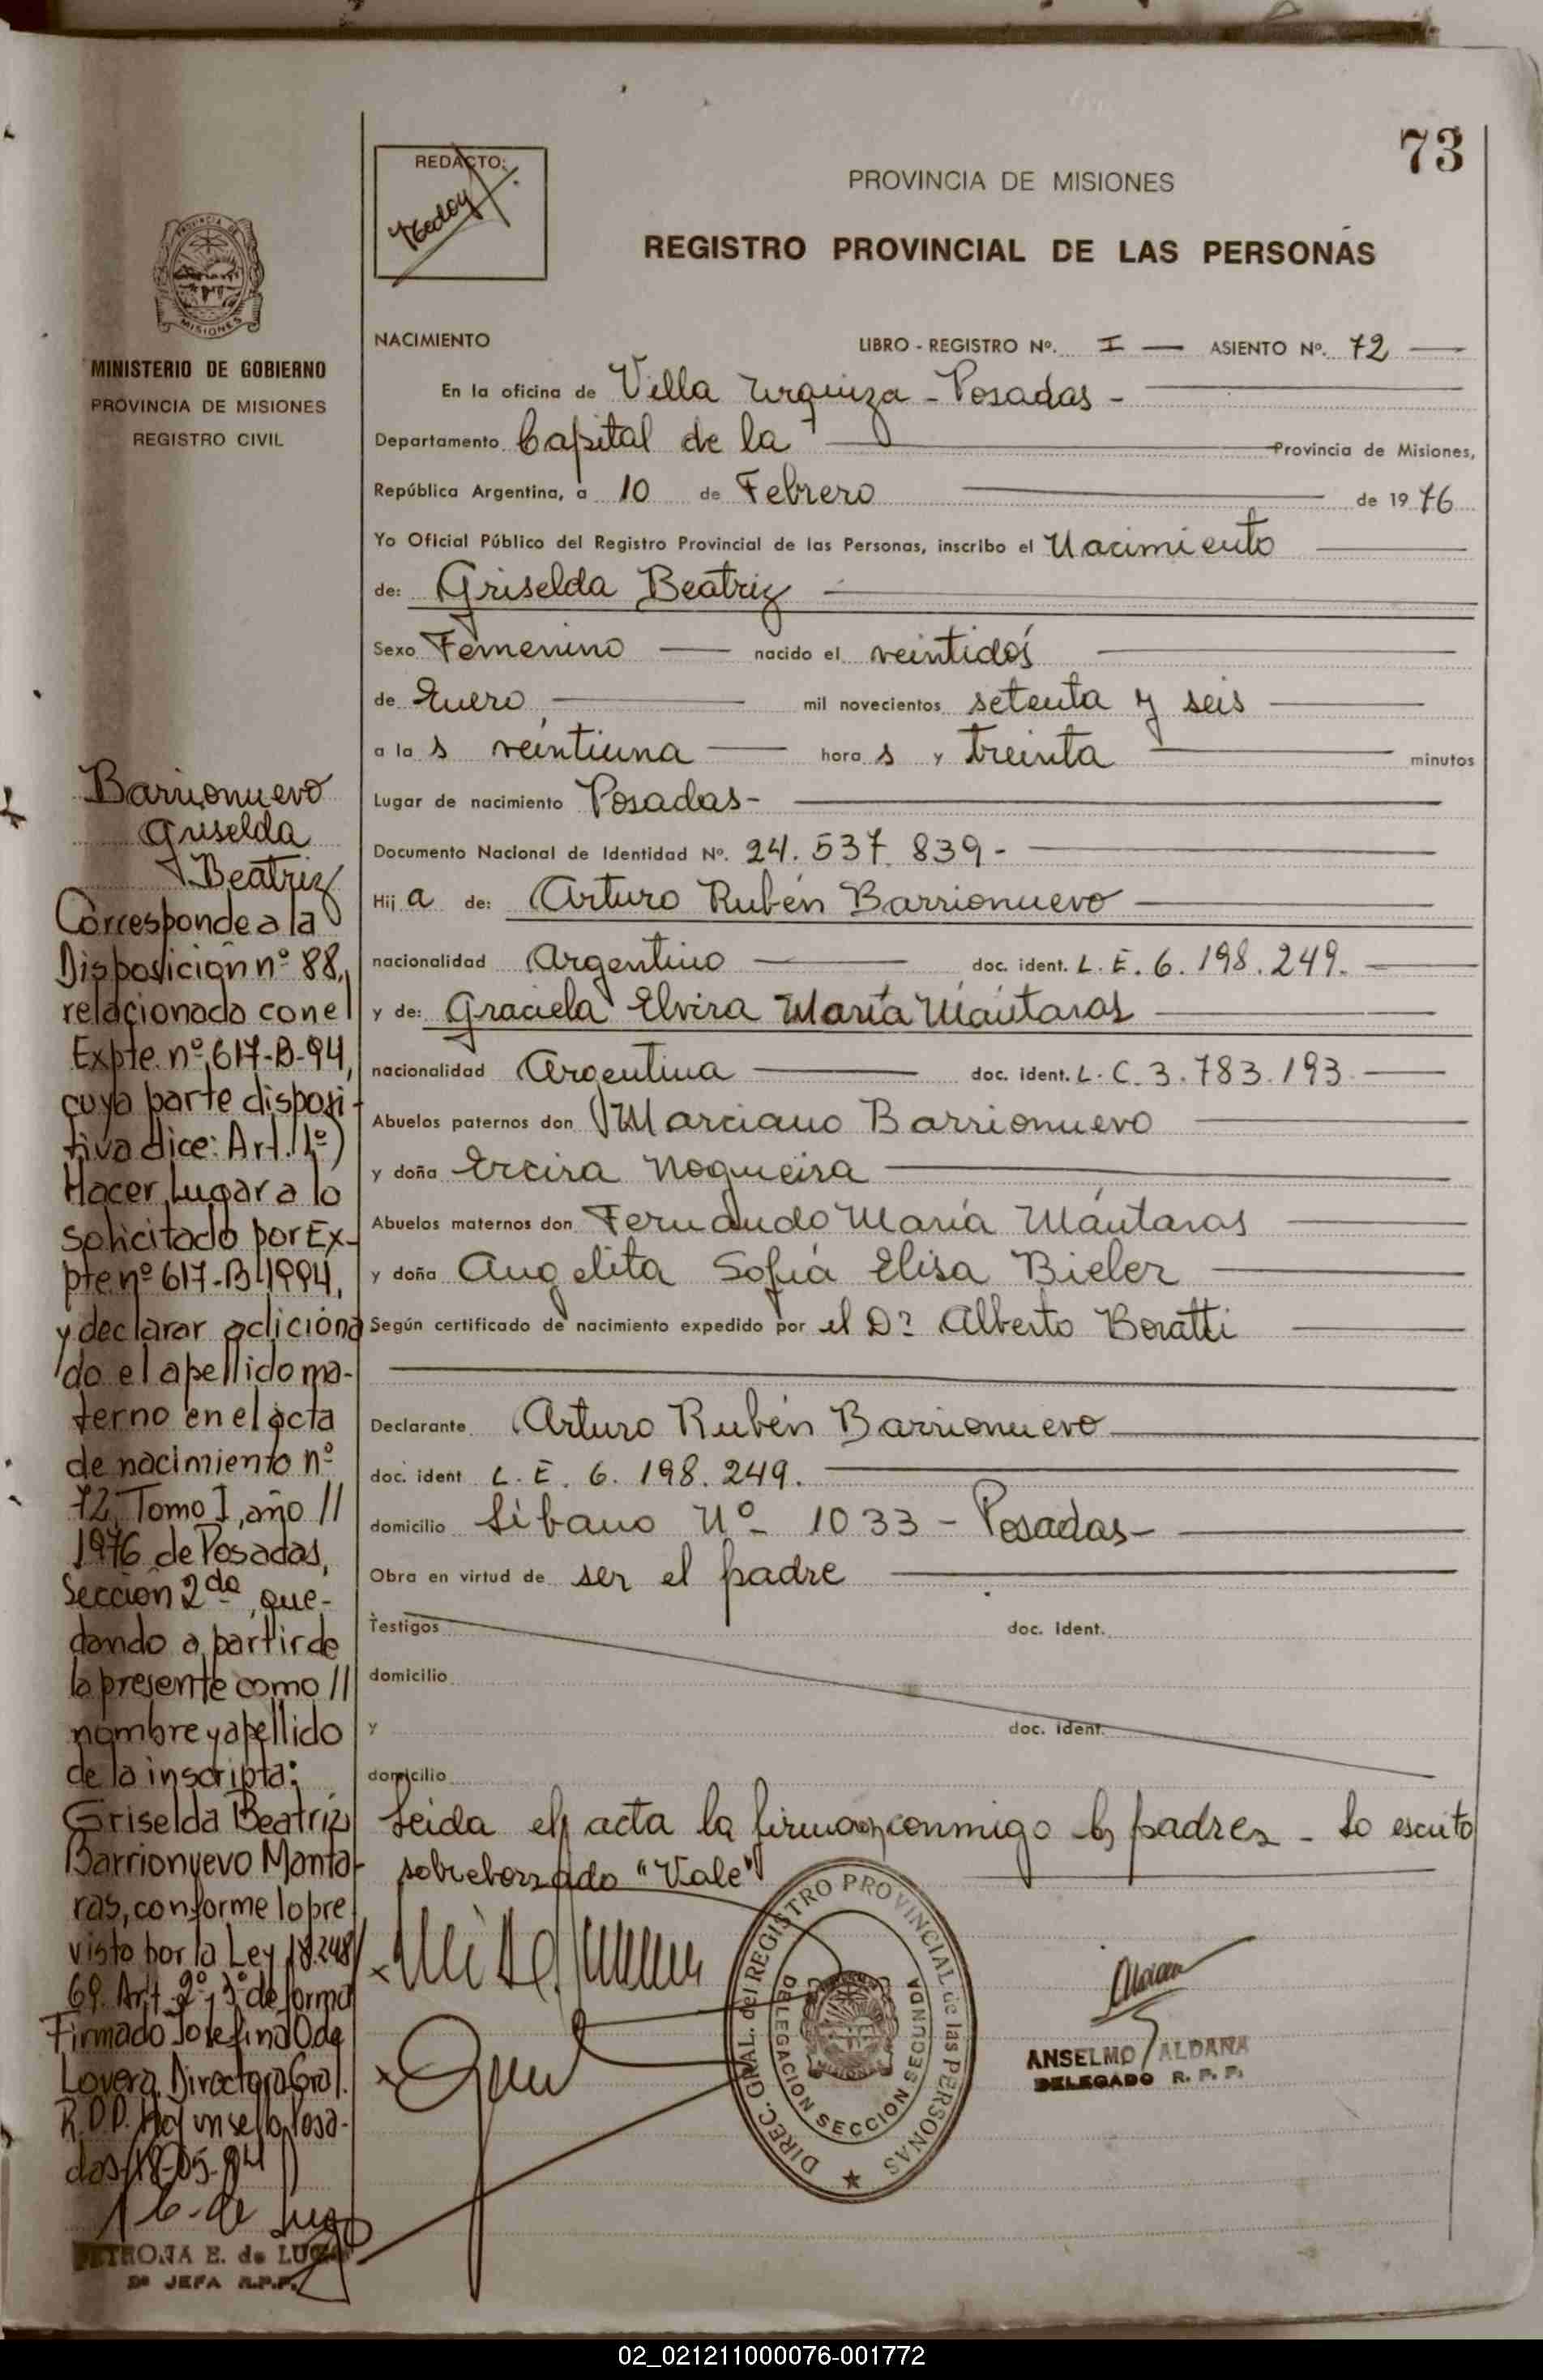 73
REDACTO:
PROVINCIA DE MISIONES
REGISTRO PROVINCIAL DE LAS PERSONAS
PROVINCIA DE
MISIONES
MINISTERIO DE GOBIERNO
PROVINCIA DE MISIONES
REGISTRO CIVIL
NACIMIENTO LIBRO - REGISTRO Nº. I — ASIENTO Nº. 72 —
En la oficina de Villa Urquiza - Posadas -
Departamento Capital de la — Provincia de Misiones,
República Argentina, a 10 de Febrero — de 1976
Yo Oficial Público del Registro Provincial de las Personas, inscribo el Nacimiento
de: Griselda Beatriz —
Sexo Femenino — nacido el veintidós
de Enero — mil novecientos setenta y seis —
a las veintiuna — horas y treinta — minutos
Lugar de nacimiento Posadas -
Documento Nacional de Identidad Nº. 24.537.839 -
Hija de: Arturo Rubén Barrionuevo —
nacionalidad Argentino — doc. ident. L.E. 6.198.249. —
y de: Graciela Elvira María Mántaras —
nacionalidad Argentina — doc. ident. L.C. 3.783.193 —
Abuelos paternos don Marciano Barrionuevo —
y doña Ercira Nogueira —
Abuelos maternos don Fernando María Mántaras —
y doña Angelita Sofía Elisa Bieler —
Según certificado de nacimiento expedido por el Dr. Alberto Boratti —
Declarante Arturo Rubén Barrionuevo
doc. ident L.E. 6.198.249. —
domicilio Líbano Nº 1033 - Posadas -
Obra en virtud de ser el padre —
Testigos doc. ident.
domicilio
y doc. ident.
domicilio
Leida el acta la firman conmigo los padres - Lo escrito
sobreborrado "Vale"
DIREC. GRAL. del REGISTRO PROVINCIAL de las PERSONAS
DELEGACION SECCION SEGUNDA
ANSELMO ALDANA
DELEGADO R. P. P.
Barrionuevo
Griselda
Beatriz
Corresponde a la
Disposición nº 88,
relacionada con el
Expte. nº 617-B-94,
cuya parte disposi-
tiva dice: Art. 1º)
Hacer Lugar a lo
solicitado por Ex-
pte nº 617-B-1994,
y declarar adiciona
do el apellido ma-
terno en el acta
de nacimiento nº
72, Tomo I, año //
1976 de Posadas,
Sección 2da, que-
dando a partir de
la presente como //
nombre y apellido
de la inscripta:
Griselda Beatriz
Barrionuevo Manta-
ras, conforme lo pre
visto por la Ley 18.248/
69. Art. 2º y 3º de forma
Firmado Josefina O. de
Lovera. Directora Gral.
R.P.P. Hay un sello Posa-
das 18-05-94
PETRONA E. de LUGO
JEFA R.P.P.
02_021211000076-001772